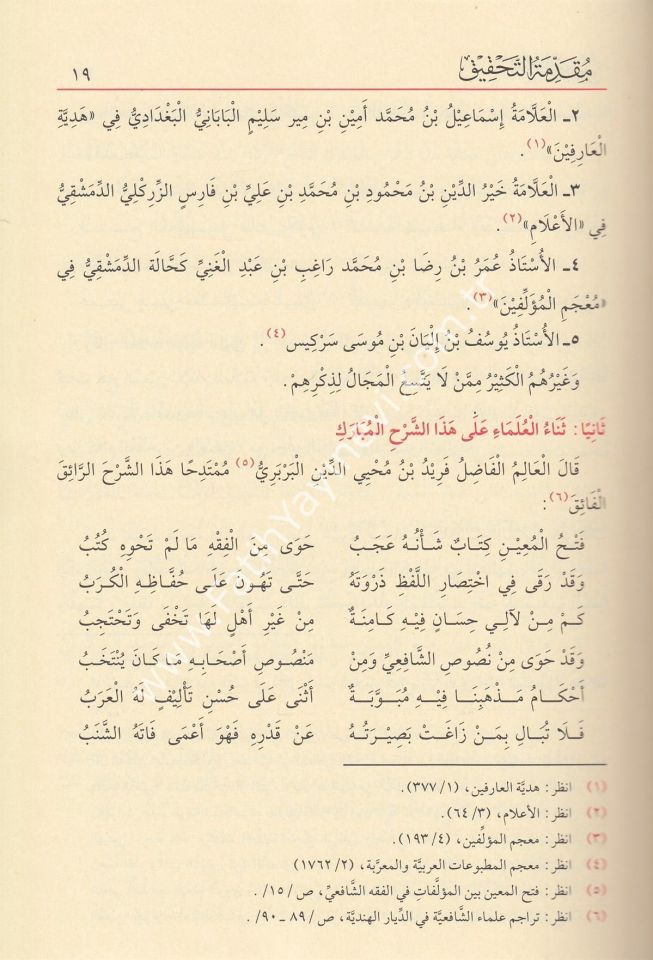 مُقَدِّمَةُ التَّحْقِيْقِ ١٩
٢ـ الْعَلَّامَةُ إِسْمَاعِيْلُ بْنُ مُحَمَّد أَمِيْنِ بْنِ مِير سَلِيْمِ الْبَابَانِيُّ الْبَغْدَادِيُّ فِي «هَدِيَّةِ
الْعَارِفِيْنَ»(١).
٣ـ الْعَلَّامَةُ خَيْرُ الدِّيْنِ بْنُ مَحْمُودِ بْنِ مُحَمَّدِ بْنِ عَلِيِّ بْنِ فَارِسِ الزِّرِكْلِيُّ الدِّمَشْقِيُّ
فِي «الأَعْلَامِ»(٢).
٤ـ الأُسْتَاذُ عُمَرُ بْنُ رِضَا بْنِ مُحَمَّد رَاغِبِ بْنِ عَبْدِ الْغَنِيِّ كَحَّالَة الدِّمَشْقِيُّ فِي
«مُعْجَمِ الْمُؤَلِّفِيْنَ»(٣).
٥ـ الأُسْتَاذُ يُوسُفُ بْنُ إِلْيَانَ بْنِ مُوسَى سَرْكِيس(٤).
وَغَيْرُهُمُ الْكَثِيْرُ مِمَّنْ لَا يَتَّسِعُ الْمَجَالُ لِذِكْرِهِمْ.
ثَانِيًا: ثَنَاءُ الْعُلَمَاءِ عَلَى هَذَا الشَّرْحِ الْمُبَارَكِ
قَالَ الْعَالِمُ الْفَاضِلُ فَرِيْدُ بْنُ مُحْيِي الدِّيْنِ الْبَرْبَرِيُّ(٥) مُمْتَدِحًا هَذَا الشَّرْحَ الرَّائِقَ
الْفَائِقَ(٦):
فَتْحُ الْمُعِيْنِ كِتَابٌ شَأْنُهُ عَجَبُ حَوَى مِنَ الْفِقْهِ مَا لَمْ تَحْوِهِ كُتُبُ
وَقَدْ رَقَى فِي اخْتِصَارِ اللَّفْظِ ذَرْوَتَهُ حَتَّى تَهُونَ عَلَى حُفَّاظِهِ الْكُرَبُ
كَمْ مِنْ لآلِي حِسَانٍ فِيْهِ كَامِنَةٌ مِنْ غَيْرِ أَهْلٍ لَهَا تَخْفَى وَتَحْتَجِبُ
وَقَدْ حَوَى مِنْ نُصُوصِ الشَّافِعِيِّ وَمِنْ مَنْصُوصِ أَصْحَابِهِ مَا كَانَ يُنْتَخَبُ
أَحْكَامُ مَذْهَبِنَا فِيْهِ مُبَوَّبَةٌ أَثْنَى عَلَى حُسْنِ تَأْلِيْفٍ لَهُ الْعَرَبُ
فَلَا تُبَالِ بِمَنْ زَاغَتْ بَصِيْرَتُهُ عَنْ قَدْرِهِ فَهْوَ أَعْمَى فَاتَهُ الشَّنَبُ
(١) انظر: هديَّة العارفين، (١/ ٣٧٧).
(٢) انظر: الأعلام، (٣/ ٦٤).
(٣) انظر: معجم المؤلِّفين، (٤/ ١٩٣).
(٤) انظر: معجم المطبوعات العربيَّة والمعرَّبة، (٢/ ١٧٦٢)
(٥) انظر: فتح المعين بين المؤلَّفات في الفقه الشَّافعيِّ، ص/ ١٥/.
(٦) انظر: تراجم علماء الشَّافعيَّة في الدِّيار الهنديَّة، ص/ ٨٩ ـ ٩٠/.
www.FatihYayinevi.com.tr